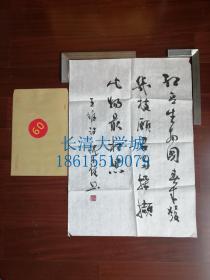 红豆生南国春来發
幾枝願君多採撷
此物最相思
王维诗
60
长清大学城
18615519079